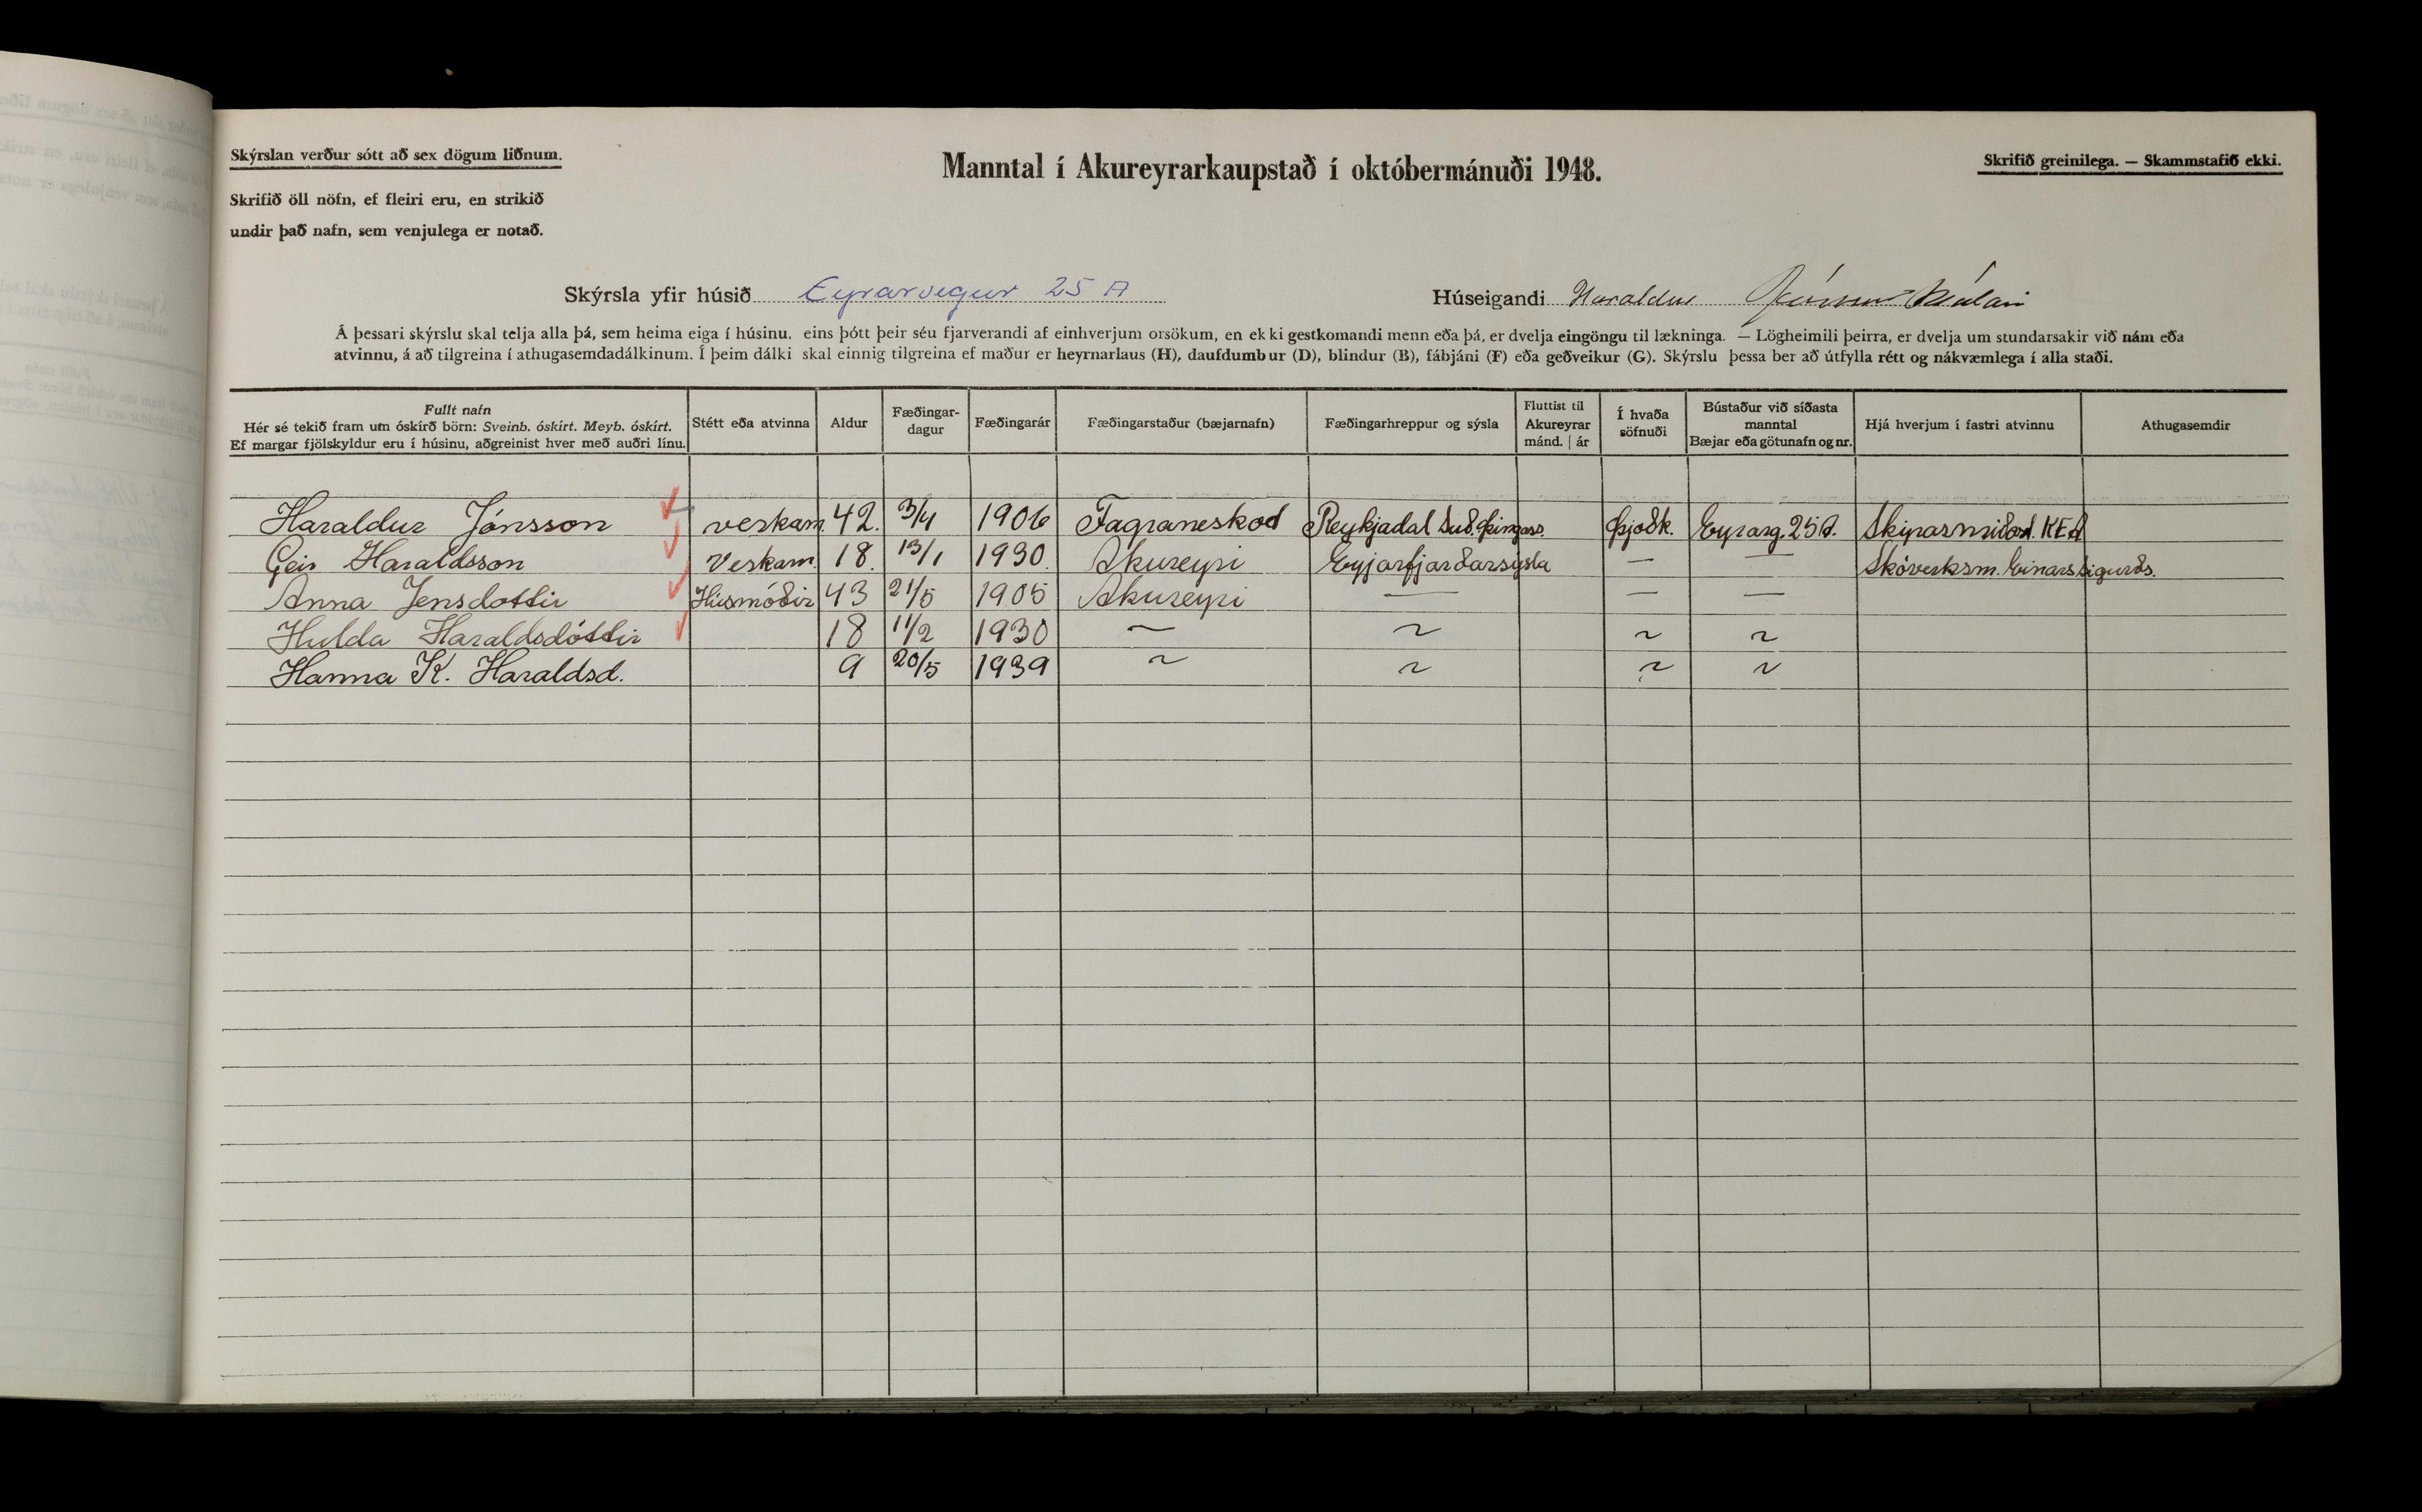 Skýrslan verður sótt að sex dögum liðnum.
Skrifið öll nöfn, ef fleiri eru, en strikið
undir það nafn, sem venjulega er notað.
Manntal í Akureyrarkaupstað í októbermánuði 1948.
Skrifið greinilega. — Skammstafið ekki.
Skýrsla yfir húsið Eyrarvegur 25 A
Húseigandi Haraldur
Á þessari skýrslu skal telja alla þá, sem heima eiga í húsinu, eins þótt þeir séu fjarverandi af einhverjum orsökum, en ekki gestkomandi menn eða þá, er dvelja eingöngu til lækninga. — Lögheimili þeirra, er dvelja um stundarsakir við nám eða
atvinnu, á að tilgreina í athugasemdadálkinum. Í þeim dálki skal einnig tilgreina ef maður er heyrnarlaus (H), daufdumbur (D), blindur (B), fábjáni (F) eða geðveikur (G). Skýrslu þessa ber að útfylla rétt og nákvæmlega í alla staði.
Fullt nafn
Hér sé tekið fram um óskírð börn: Sveinb. óskírt. Meyb. óskírt.
Ef margar fjölskyldur eru í húsinu, aðgreinist hver með auðri línu.
Stétt eða atvinna
Aldur
Fæðingar-
dagur
Fæðingarár
Fæðingarstaður (bæjarnafn)
Fæðingarhreppur og sýsla
Fluttist til
Akureyrar
mánd. | ár
Í hvaða
söfnuði
Bústaður við síðasta
manntal
Bæjar eða götunafn og nr.
Hjá hverjum í fastri atvinnu
Athugasemdir
Haraldur Jónsson verkam. 42. 3/4 1906 Fagraneskod Reykjadal Suð. Þingas. Þjoðk. Eyrarg. 25 A. Skipasmiðast. KEA
Geir Haraldsson Verkam. 18. 13/1 1930. Akureyri Eyjarfjarðarsýsla — — Skóverksm. Einars Sigurðs.
Anna Jensdottir Húsmóðir 43 21/5 1905 Akureyri — — —
Hulda Haraldsdóttir 18 11/2 1930 ~ ~ ~ ~
Hanna K. Haraldsd. 9 20/5 1939 ~ ~ ~ ~